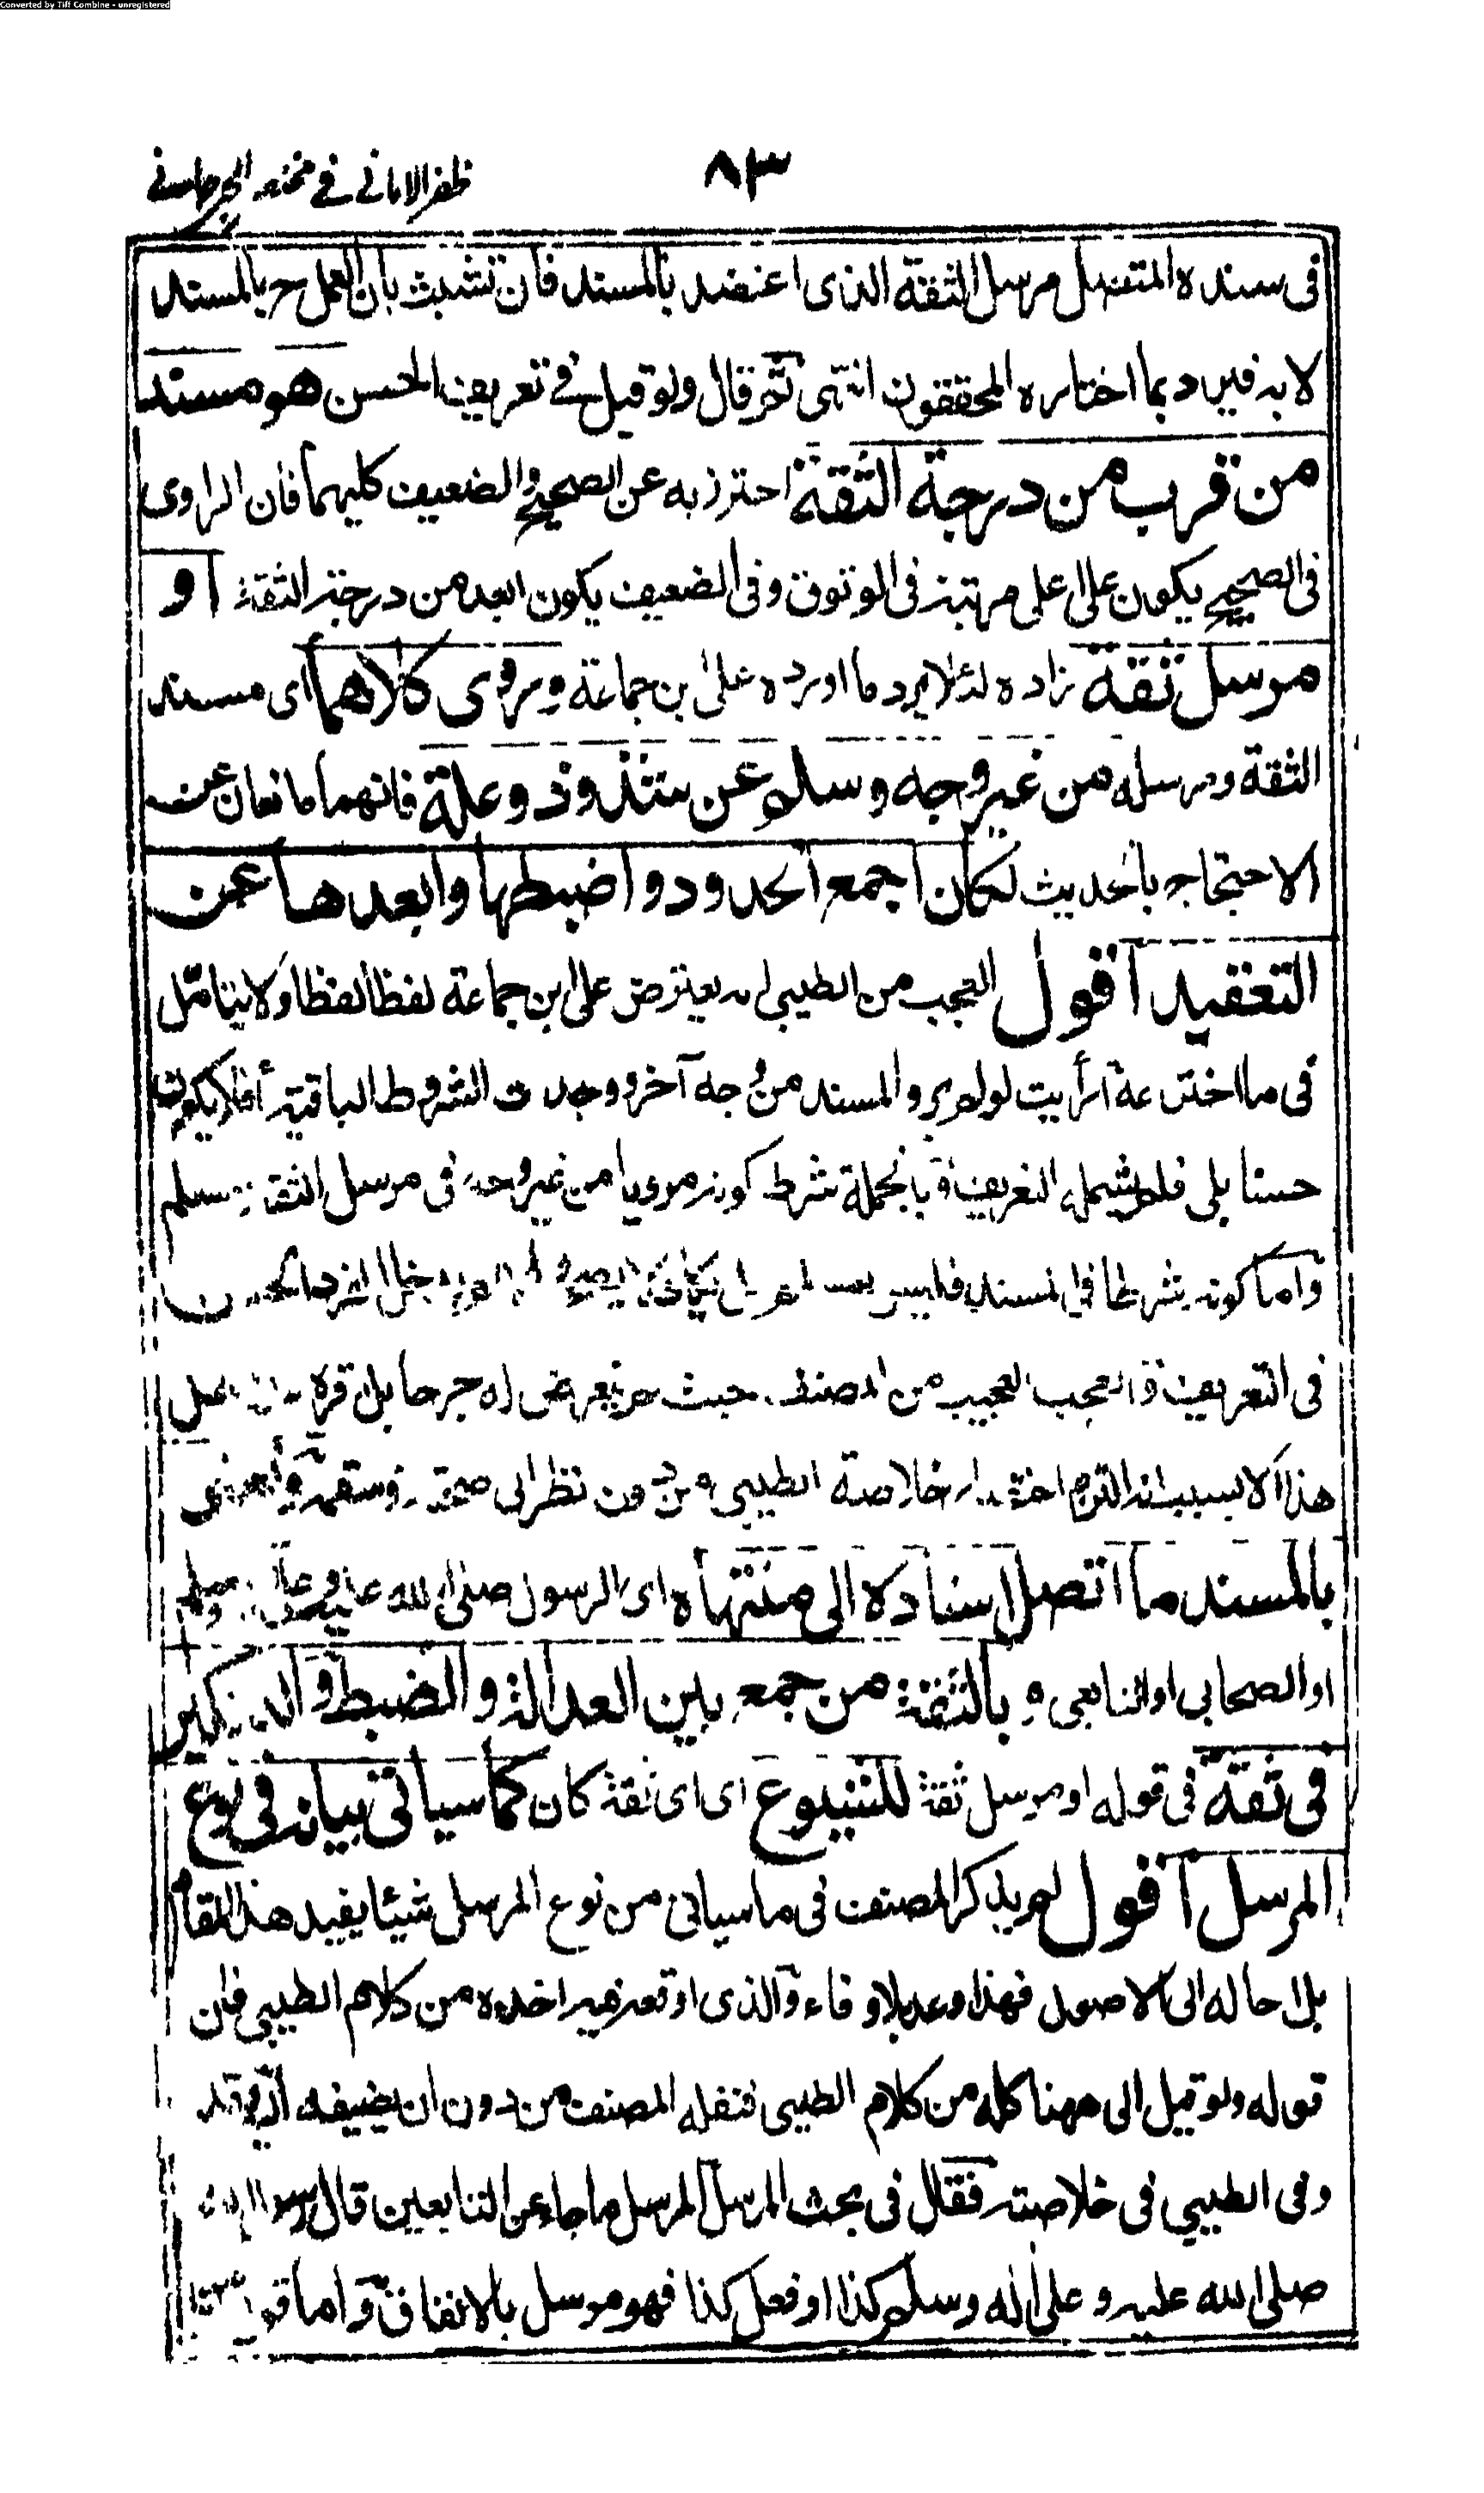 Converted by Tiff Combine - unregistered
ظفر الامانی فے مختصر الجرجانے
۸۳
فی سنده المتصل مرسل الثقة الذی اعتضد بالمسند فان تشبث بان العمل ح بالمسند
لا به فيرد بما اختاره المحققون انتهى ثم قال ولو قيل فے تعريف الحسن هو مسند
من قرب من درجة الثقة احترز به عن الصحيح والضعيف كليهما فان الراوی
فی الصحيح يكون علی اعلی مرتبة فی الوثوق وفی الضعيف يكون ابعد من درجة الثقة او
مرسل ثقة زاده لئلا يرد ما اورده علی ابن جماعة وروی كلاهما ای مسند
الثقة ومرسله من غير وجه وسلم عن شذوذ وعلة فانهما مانعان عن
الاحتجاج بالحديث لكان اجمع الحدود واضبطها وابعدها عن
التعقيد اقول العجب من الطيبی انه يعترض علی ابن جماعة لفظا لفظا ولا يتامّل
فی ما اخترعه أرأيت لو لم يرو المسند من وجه آخر ووجدت الشروط الباقية أفلا يكون
حسنا بلی فلم يشمله التعريف وبالجملة شرط كونه مرويا من غير وجه فی مرسل الثقة مسلم
واما كونه شرطا فی المسند فليس
فی التعريف والعجب العجيب من المصنف حيث لم يتعرض له جرحا بل قره
هذا الا بسبب انه التزم اختصار خلاصة الطيبی من دون نظر الی صحته وسقمه واعنی
بالمسند ما اتصل اسناده الی منتهاه ای الرسول صلی الله عليه وعلی وسلم
او الصحابی او التابعی وبالثقة من جمع بين العدالة والضبط والتنكير
فی ثقة فی قوله او مرسل ثقة للشيوع ای ای ثقة كان كما سياتی بيانه فی نوع
المرسل اقول لم يذكر المصنف فی ما سياتی من نوع المرسل شيئا يفيد هذا المقام
بل احاله الی الاصول فهذا وعد بلا وفاء والذی اوقعه فيه اخذه من كلام الطيبی فان
قوله ولو قيل الی ههنا كله من كلام الطيبی فنقله المصنف من دون ان يضيفه اليه وقد
وفی الطيبی فی خلاصته فقال فی بحث المرسل المرسل ما جاء عن التابعين قال رسول الله
صلی الله عليه وعلی اٰله وسلم كذا او فعل كذا فهو مرسل بالاتفاق واما